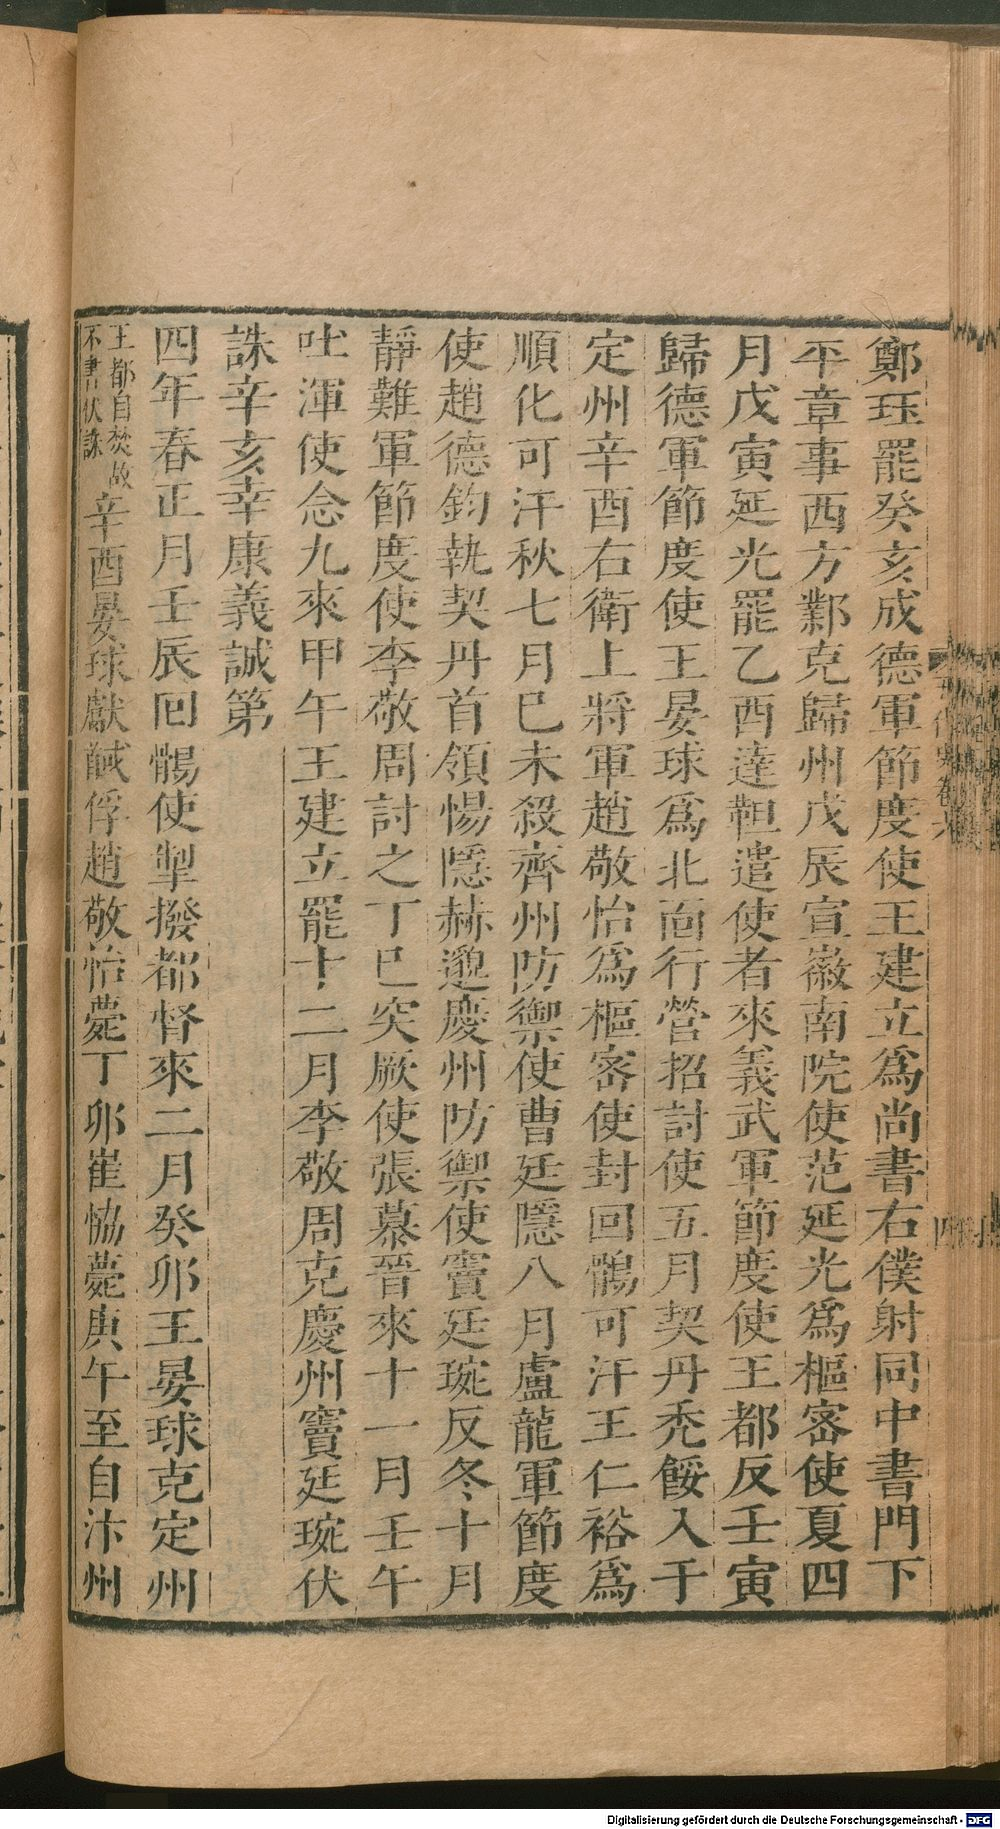 鄭珏罷癸亥成德軍節度使王建立爲尚書右僕射同中書門下
平章事西方鄴克歸州戊辰宣徽南院使范延光爲樞密使夏四
月戊寅延光罷乙酉達靼遣使者來義武軍節度使王都反壬寅
歸德軍節度使王晏球爲北面行營招討使五月契丹禿餒入于
定州辛酉右衛上將軍趙敬怡爲樞密使封回鶻可汗王仁裕爲
順化可汗秋七月己未殺齊州防禦使曹廷隱八月盧龍軍節度
使趙德鈞執契丹首領惕隱赫邈慶州防禦使竇廷琬反冬十月
靜難軍節度使李敬周討之丁巳突厥使張慕晉來十一月壬午
吐渾使念九來甲午王建立罷十二月李敬周克慶州竇廷琬伏
誅辛亥幸康義誠第
四年春正月壬辰回鶻使掣撥都督來二月癸卯王晏球克定州
王都自焚故
不書伏誅
辛酉晏球獻馘俘趙敬怡薨丁卯崔協薨庚午至自汴州
五代史卷六
四
Digitalisierung gefördert durch die Deutsche Forschungsgemeinschaft - DFG